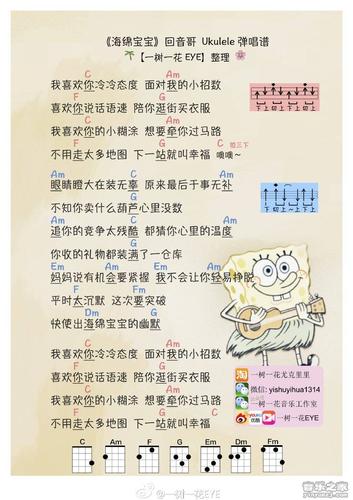 《海绵宝宝》回音哥 Ukulele 弹唱谱
【一树一花EYE】整理
C Am
我喜欢你冷冷态度 面对我的小招数
F G
喜欢你说话语速 陪你逛街买衣服
C Am
我喜欢你的小糊涂 想要牵你过马路
F G C 扫三下
不用走太多地图 下一站就叫幸福 噢噢~
下 上 切 上 下 上
Am Em
眼睛瞪大在装无辜 原来最后于事无补
F C
不知你卖什么葫芦心里没数
下 切 上 ~ 上 下 上
Am Em
追你的竞争太残酷 都猜你心里的温度
F G
你收的礼物都装满了一仓库
Em Am Em Am
妈妈说有机会要紧握 我不会让你轻易挣脱
F Fm
平时太沉默 这次要突破
Dm G
快使出海绵宝宝的幽默
C Am
我喜欢你冷冷态度 面对我的小招数
F G
喜欢你说话语速 陪你逛街买衣服
C Am
我喜欢你的小糊涂 想要牵你过马路
F G C
不用走太多地图 下一站就叫幸福
淘 一树一花尤克里里
微信: yishuyihua1314
一树一花音乐工作室
YOUKU 优酷 一树一花EYE
C Am F G Em Dm Fm
@一树一花EYE
音乐之家